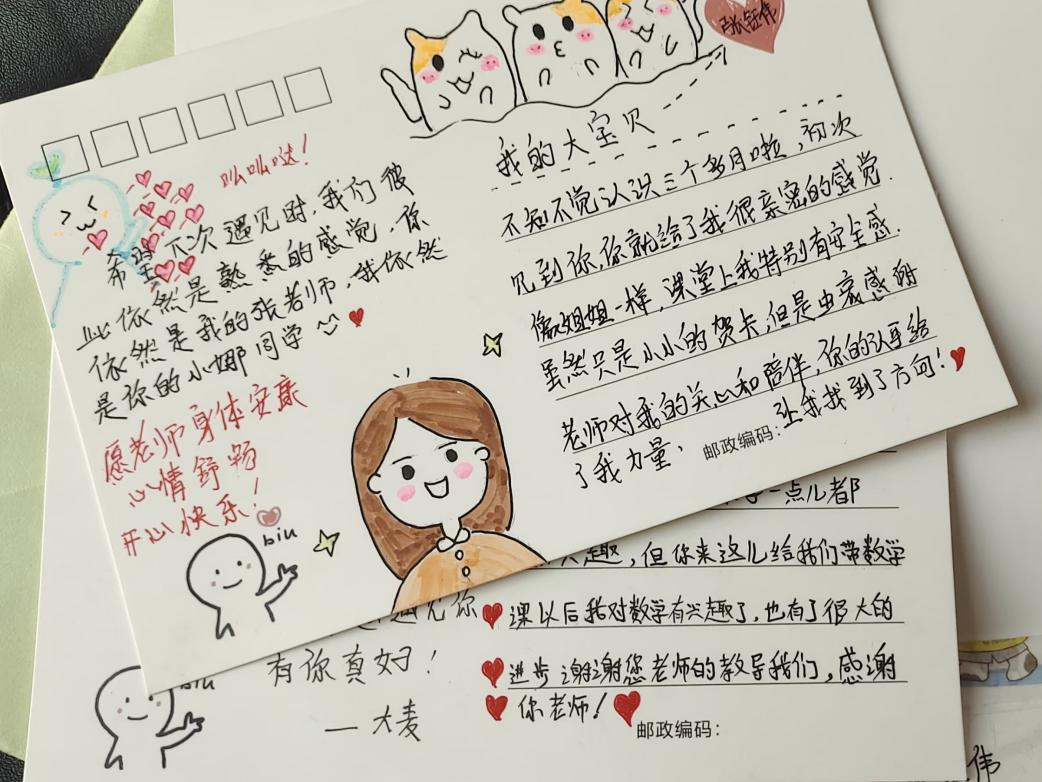 张钰伟
呦呦哒！
希望下次遇见时，我们彼
此依然是熟悉的感觉，你
依然是我的张老师，我依然
是你的小娜同学
愿老师身体安康
心情舒畅
开心快乐！
biu
我的大宝贝
不知不觉认识三个多月啦，初次
见到你，你就给了我很亲密的感觉.
像姐姐一样，课堂上我特别有安全感.
虽然只是小小的贺卡，但是由衷感谢
老师对我的关心和陪伴，你的认真给
了我力量，
邮政编码：
让我找到了方向！
一点儿都
趣，但你来这儿给我们带数学
课以后我对数学有兴趣了，也有了很大的
进步 谢谢您老师的教导我们，感谢
你老师！
邮政编码：
遇见你
有你真好！
biu
—大麦
伟